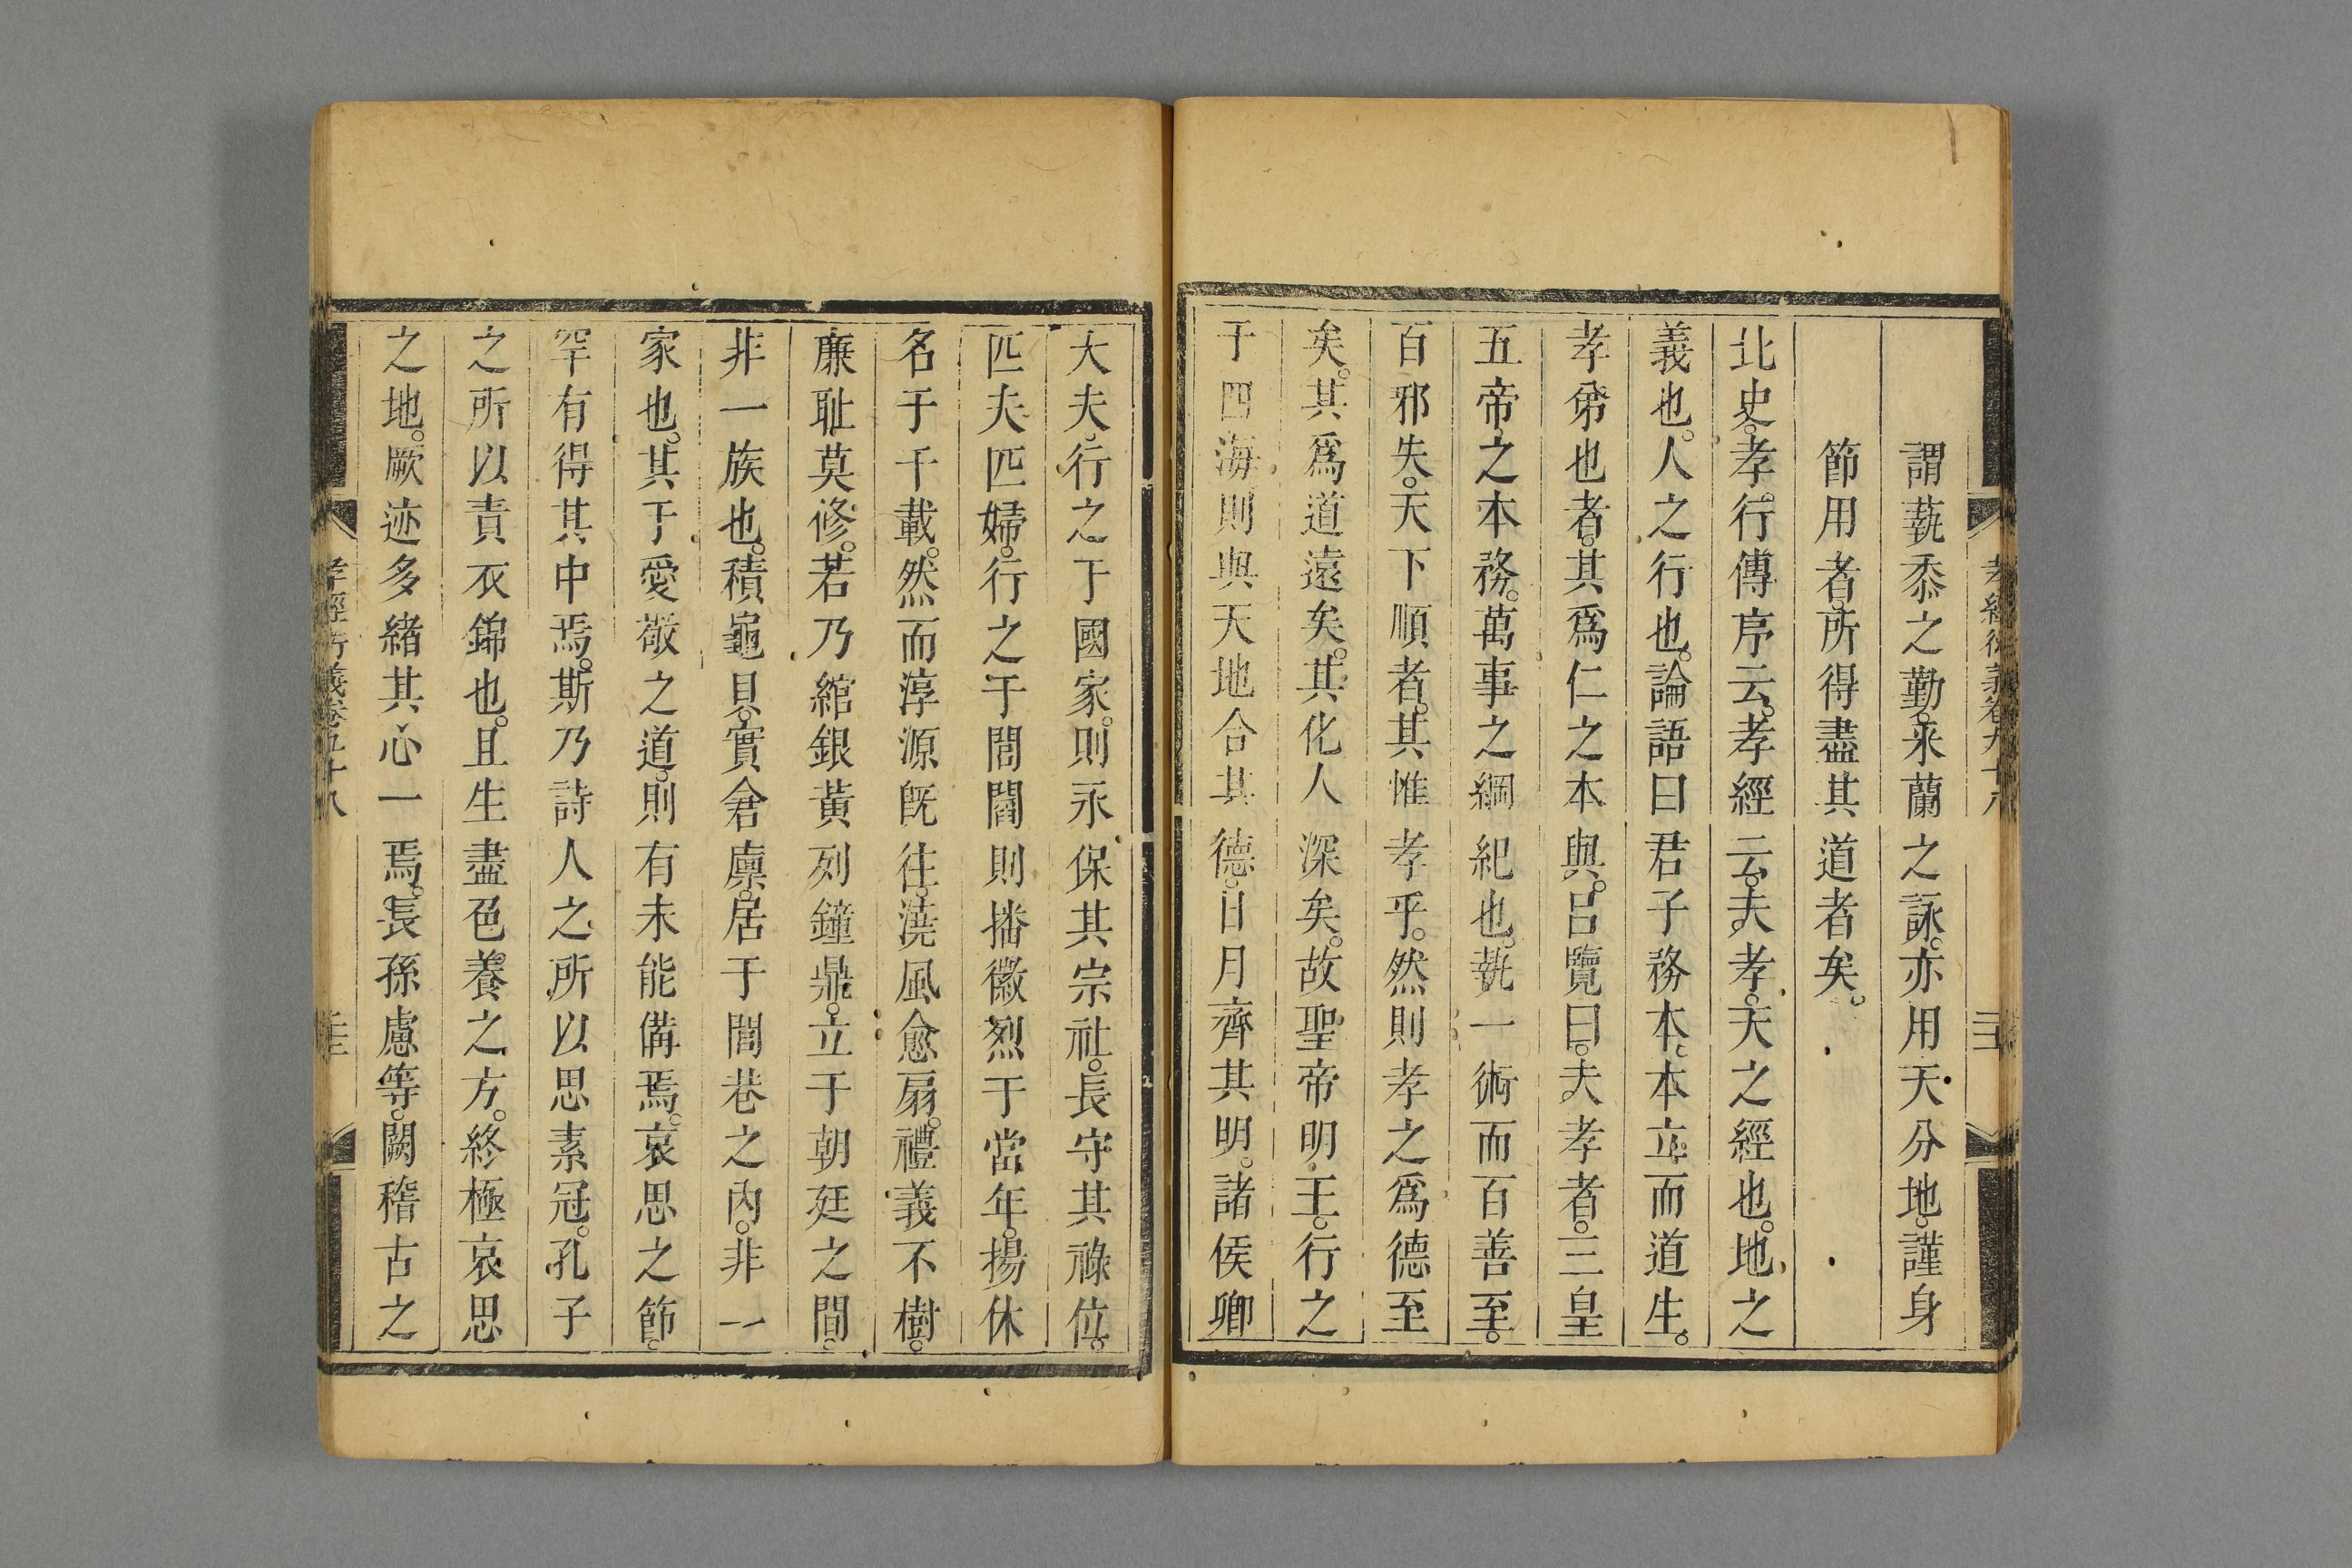 謂蓺黍之勤。采蘭之詠。亦用天分地。謹身
節用者。所得盡其道者矣。
北史。孝行傳序云。孝經云。夫孝。天之經也。地之
義也。人之行也。論語曰君子務本。本立而道生。
孝弟也者。其爲仁之本與。呂覽曰。夫孝者。三皇
五帝之本務。萬事之綱紀也。執一術而百善至。
百邪失。天下順者。其惟孝乎。然則孝之爲德至
矣。其爲道遠矣。其化人深矣。故聖帝明王。行之
于四海則與天地合其德。日月齊其明。諸侯卿
大夫。行之于國家。則永保其宗社。長守其祿位。
匹夫匹婦。行之于閭閻則播徽烈于當年。揚休
名于千載。然而淳源旣往。澆風愈扇。禮義不樹。
廉耻莫修。若乃綰銀黃列鐘鼎。立于朝廷之間。
非一族也。積龜貝。實倉廪。居于閭巷之內。非一
家也。其于愛敬之道。則有未能備焉。哀思之節。
罕有得其中焉。斯乃詩人之所以思素冠。孔子
之所以責衣錦也。且生盡色養之方。終極哀思
之地。厥迹多緒其心一焉。長孫慮等。闕稽古之
孝經衍義卷九十八